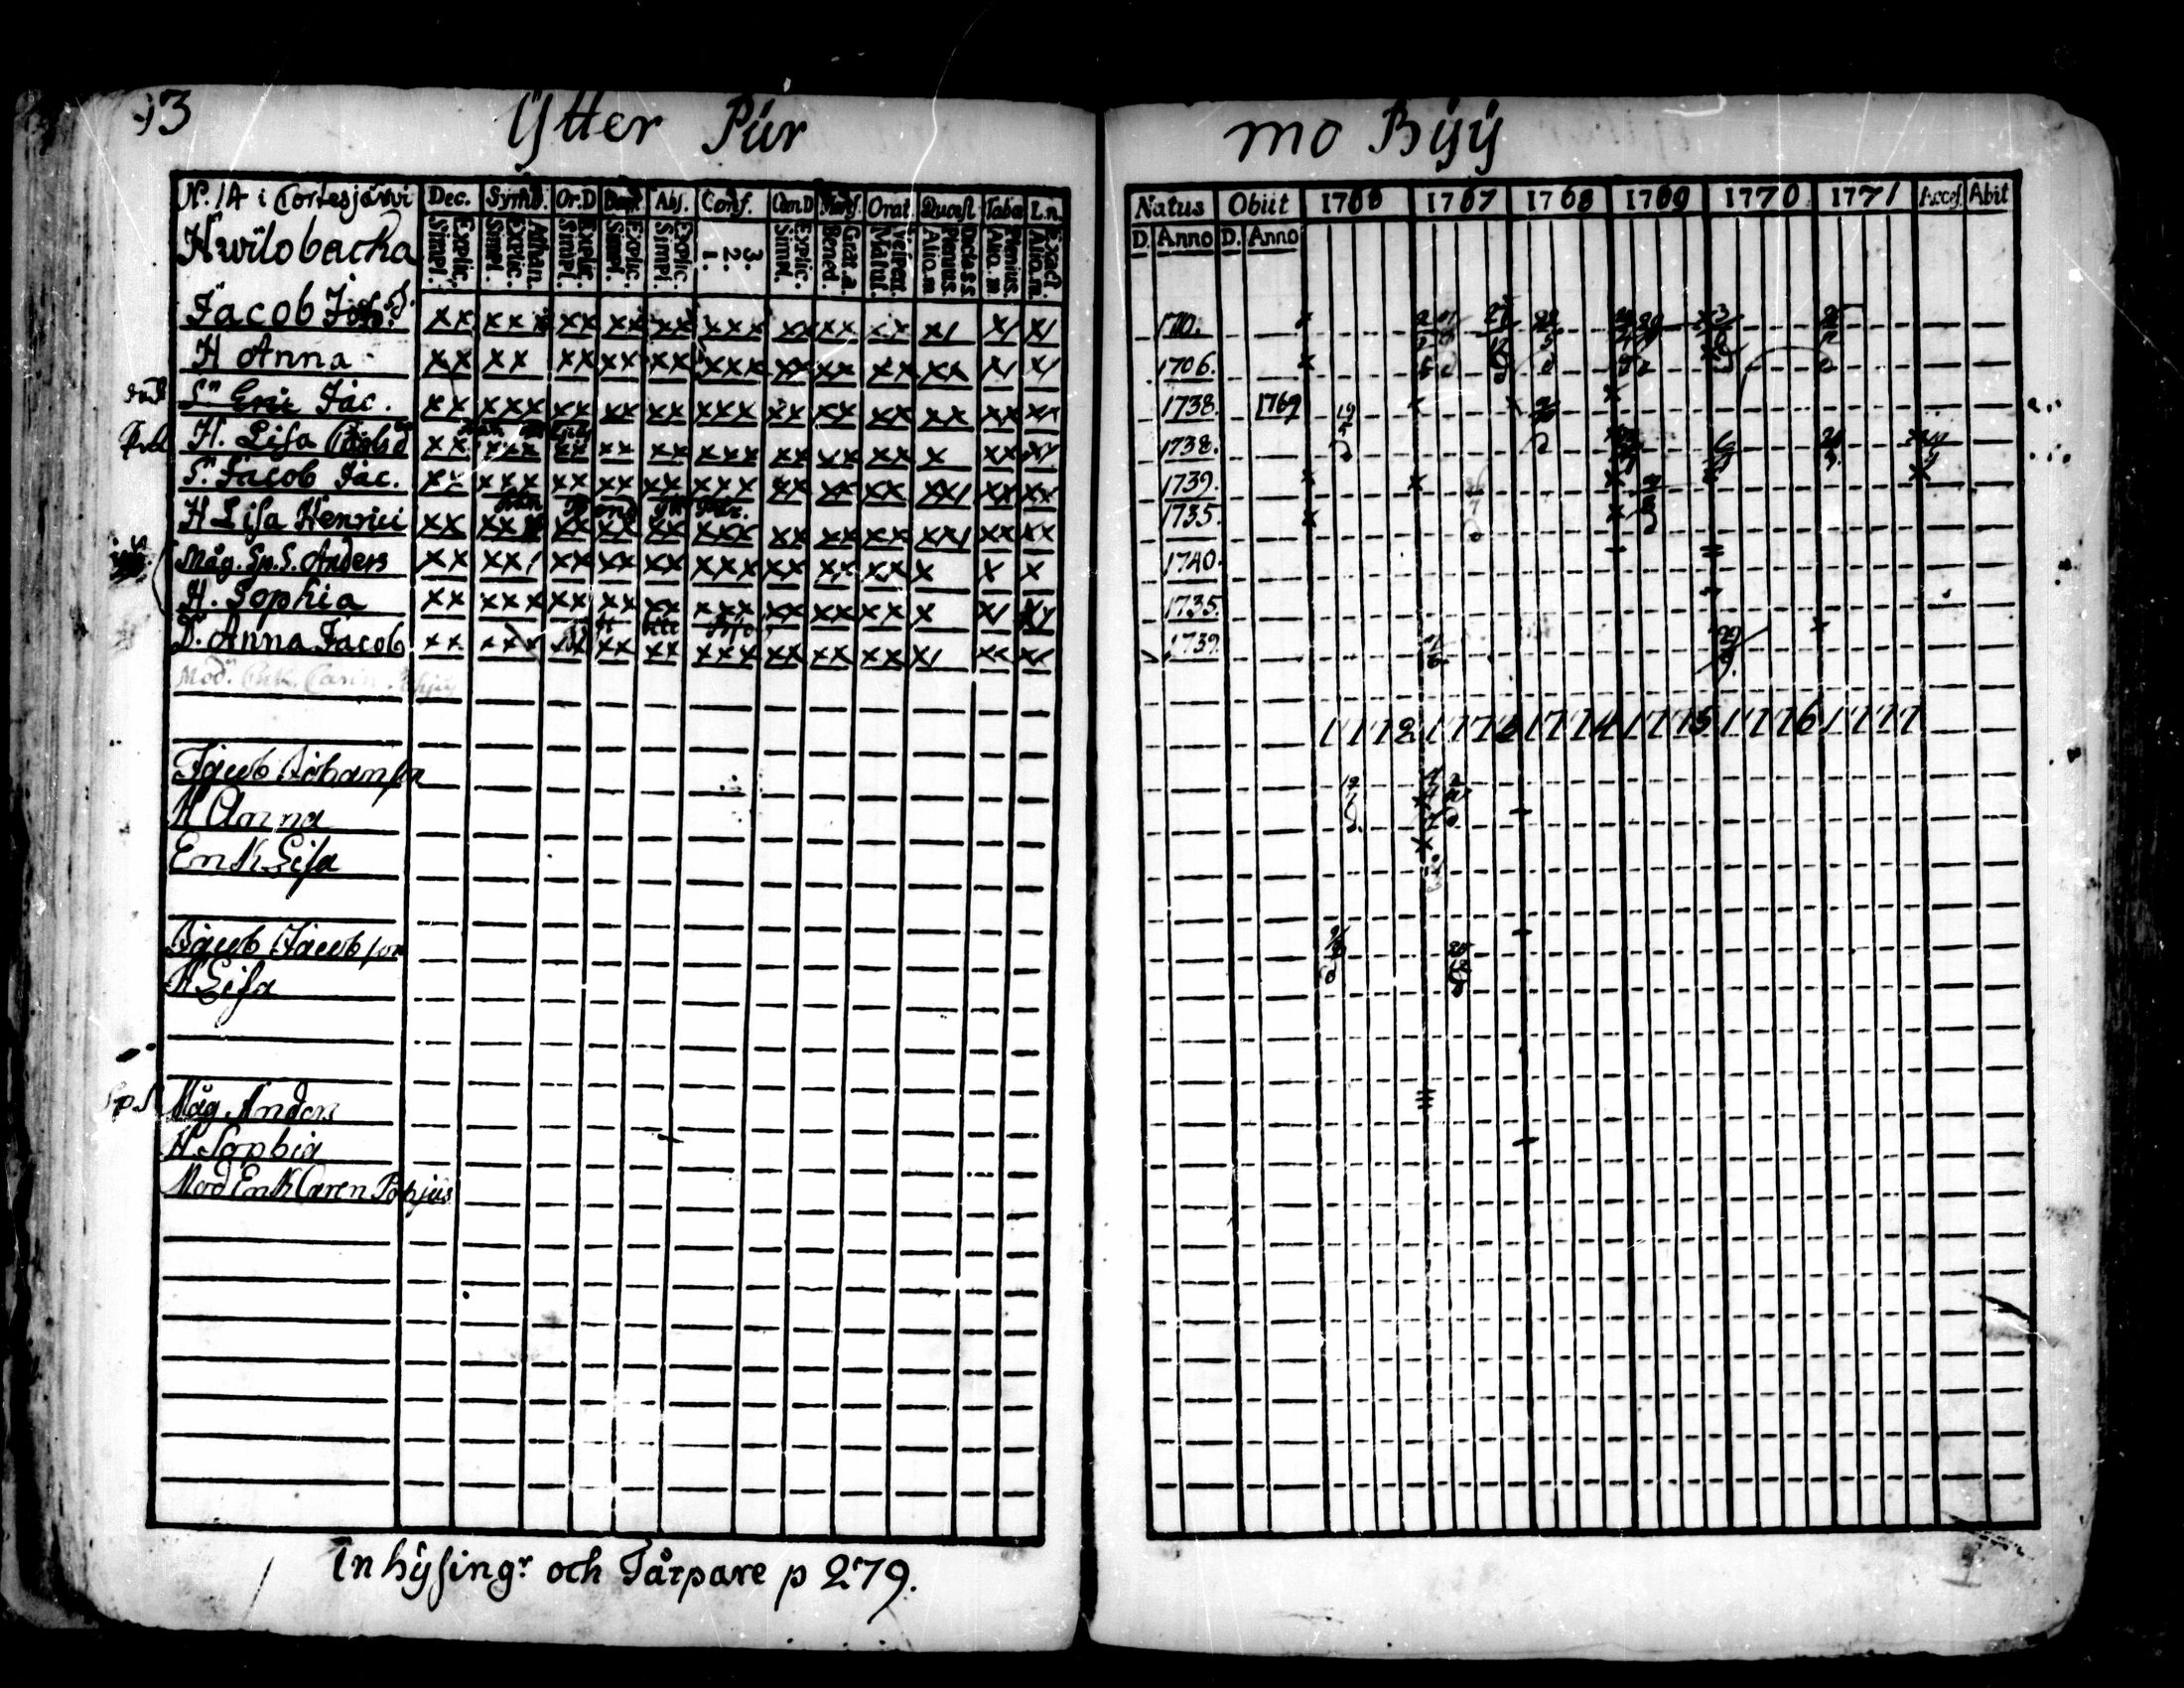 93
Ytter Pur
mo Bÿÿ
N. 14 i Cortesjärvi
Hwilobacka
Dec. Symb. Or.D Bapt. Abs. Conf. Cœn D Mens. Orat. Quæst Tabœ L.n.
Explic. Simpl. Athan. Explic. Simpl. Explic. Simpl. Explic. Simpl. Explic. Simpl. 3. 2. 1. Explic. Simpl. Grat. a. Bened. Vespert. Matut. Dicta SS Plenius. Aliq.m Plenius. Aliq.m Exact. Aliq.m
Natus Obiit 1766 1767 1768 1769 1770 1771 Access Abit
D. Anno D. Anno
Jacob Joh. 1710.
H Anna 1706.
död Sn Eric Jac. 1738. 1769
H. Lisa 1738.
Sn Jacob Jac. 1739.
H Lisa Henrici 1735.
Måg. Sp.S. Anders 1740.
H. Sophia 1735.
D. Anna Jacob 1739.
Mod. Enk. Carin
1772 1773 1774 1775 1776 1777
Jacob Johansson
H Anna
Enk Lisa
Jacob Jacobsson
H Lisa
Sp.S Måg Anders
H Sophia
Mod Enk Caren Pohjus
Inhÿsingr och Tårpare p 279.